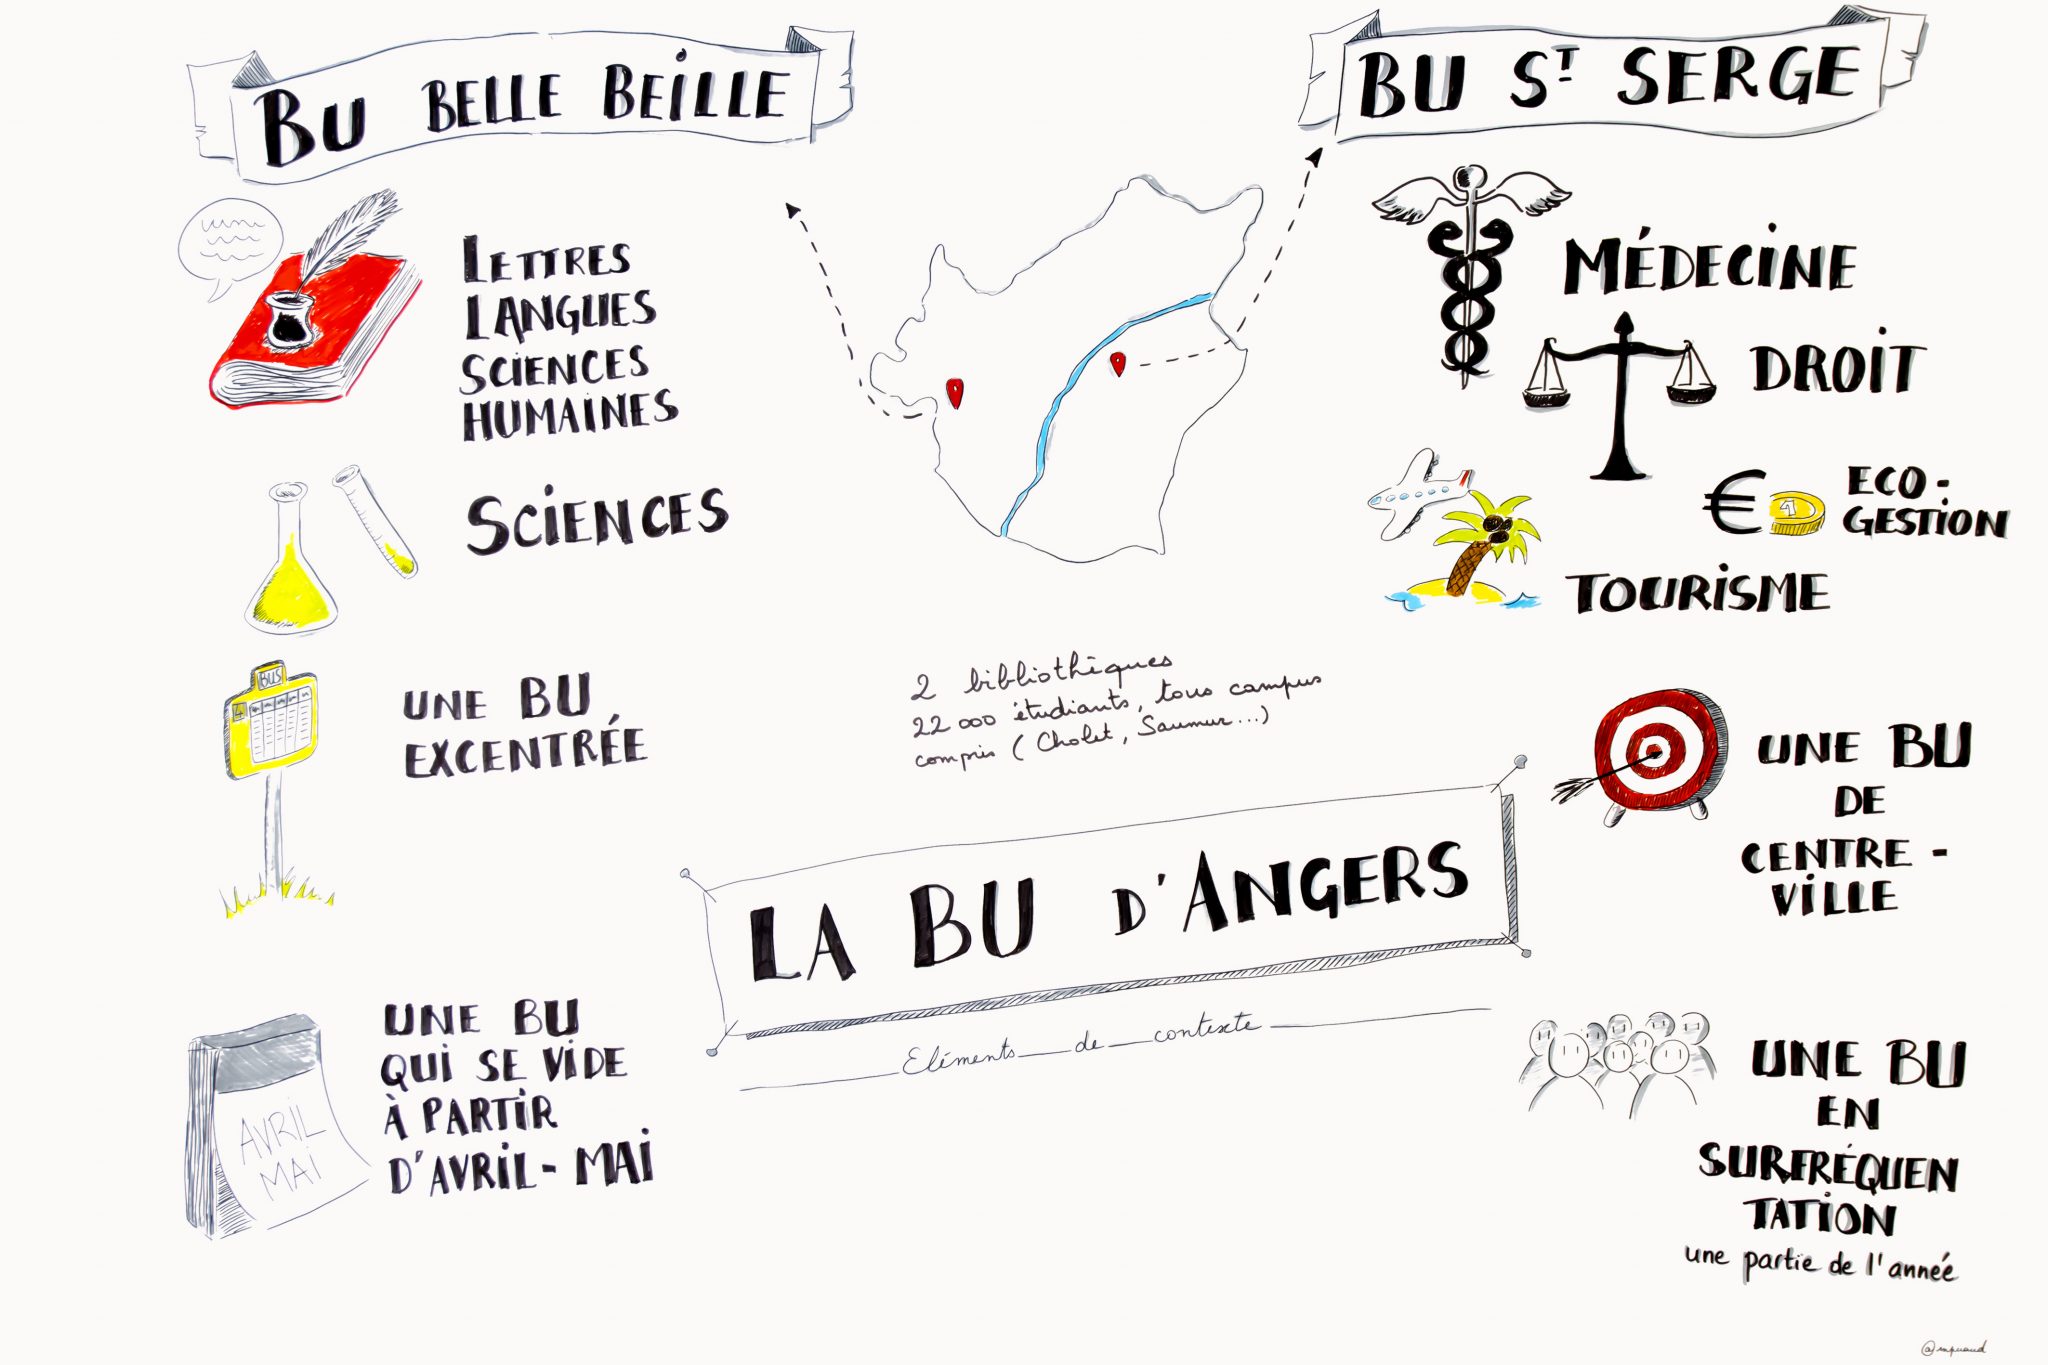 BU BELLE BEILLE
LETTRES
LANGUES
SCIENCES
HUMAINES
SCIENCES
BUS
UNE BU
EXCENTRÉE
AVRIL
MAI
UNE BU
QUI SE VIDE
À PARTIR
D'AVRIL - MAI
2 bibliothèques
22 000 étudiants, tous campus
compris (Cholet, Saumur...)
LA BU D'ANGERS
Eléments de contexte
BU ST SERGE
MÉDECINE
DROIT
€ 1
ECO -
GESTION
TOURISME
UNE BU
DE
CENTRE -
VILLE
UNE BU
EN
SURFRÉQUEN
TATION
une partie de l'année